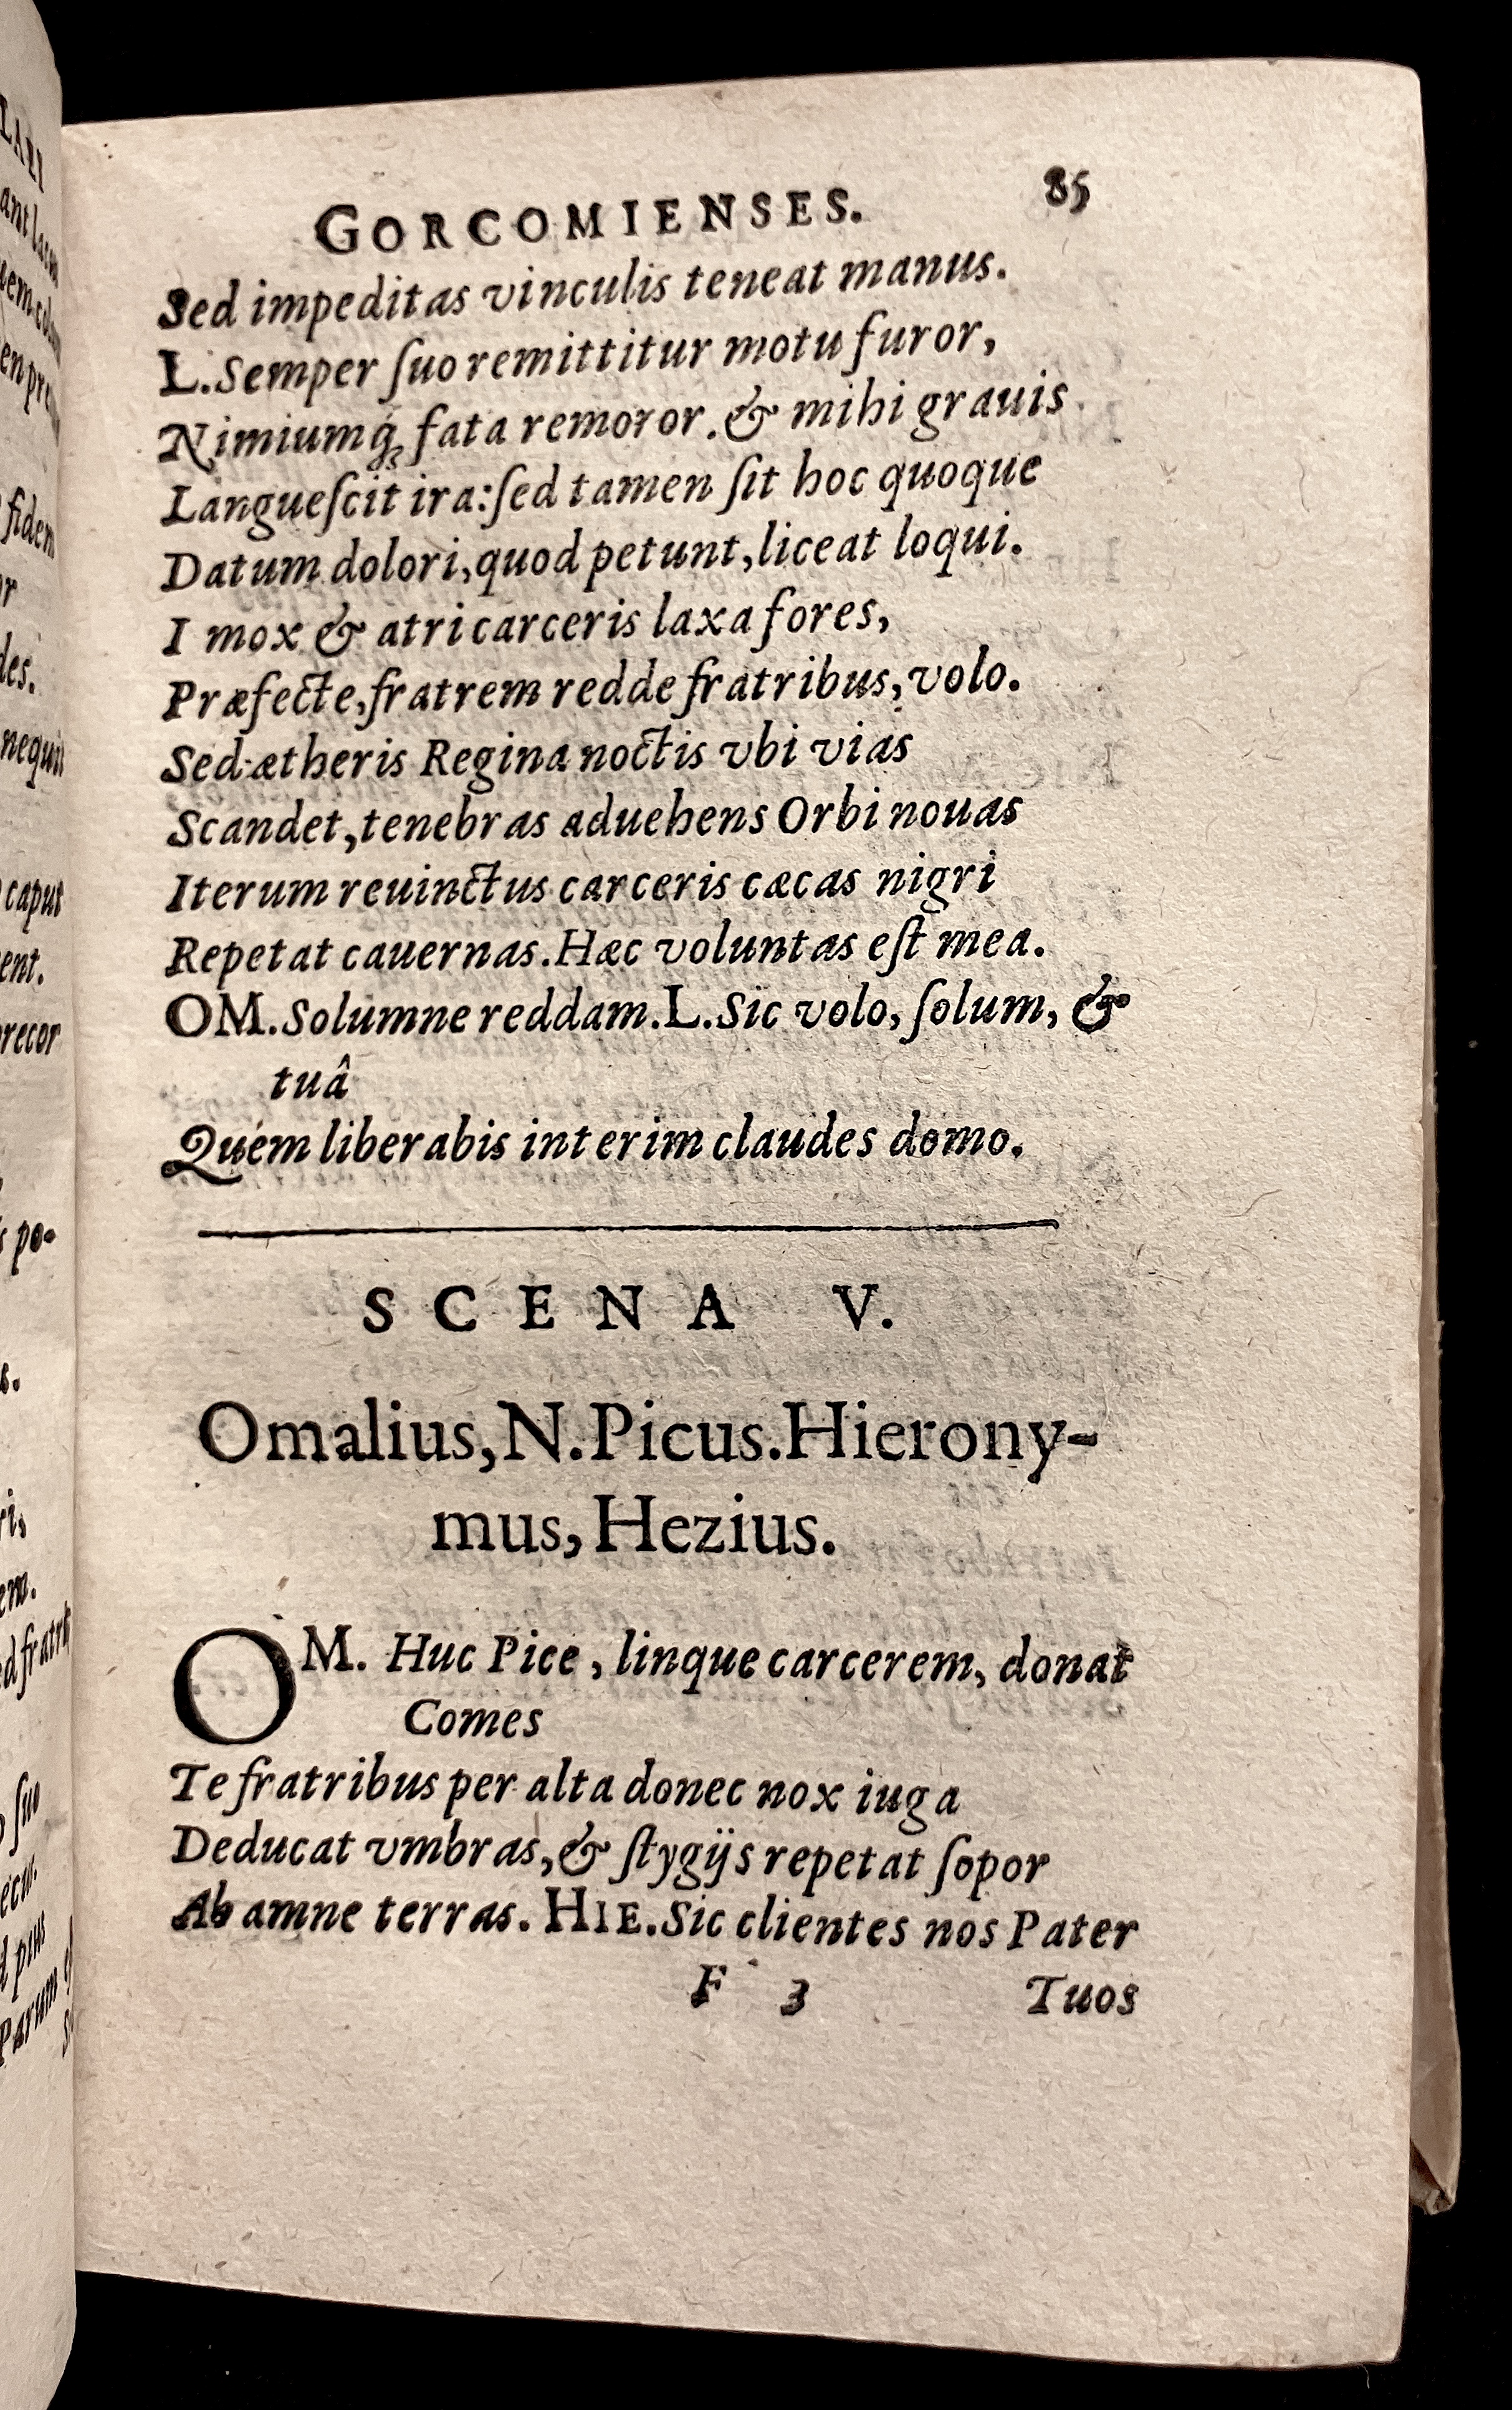 GORCOMIENSES. 85
Sed impeditas vinculis teneat manus.
L. Semper ſuo remittitur motu furor,
Nimiumq́; fata remoror. & mihi grauis
Langueſcit ira: ſed tamen ſit hoc quoque
Datum dolori, quod petunt, liceat loqui.
I mox & atri carceris laxa fores,
Præfecte, fratrem redde fratribus, volo.
Sed ætheris Regina noctis vbi vias
Scandet, tenebras aduehens Orbi nouas
Iterum reuinctus carceris cæcas nigri
Repetat cauernas. Hæc voluntas eſt mea.
OM. Solumne reddam. L. Sic volo, ſolum, &
tuâ
Quem liberabis interim claudes domo.
SCENA V.
Omalius, N. Picus. Hierony-
mus, Hezius.
OM. Huc Pice, linque carcerem, donat
Comes
Te fratribus per alta donec nox iuga
Deducat vmbras, & ſtygijs repetat ſopor
Ab amne terras. HIE. Sic clientes nos Pater
F 3 Tuos